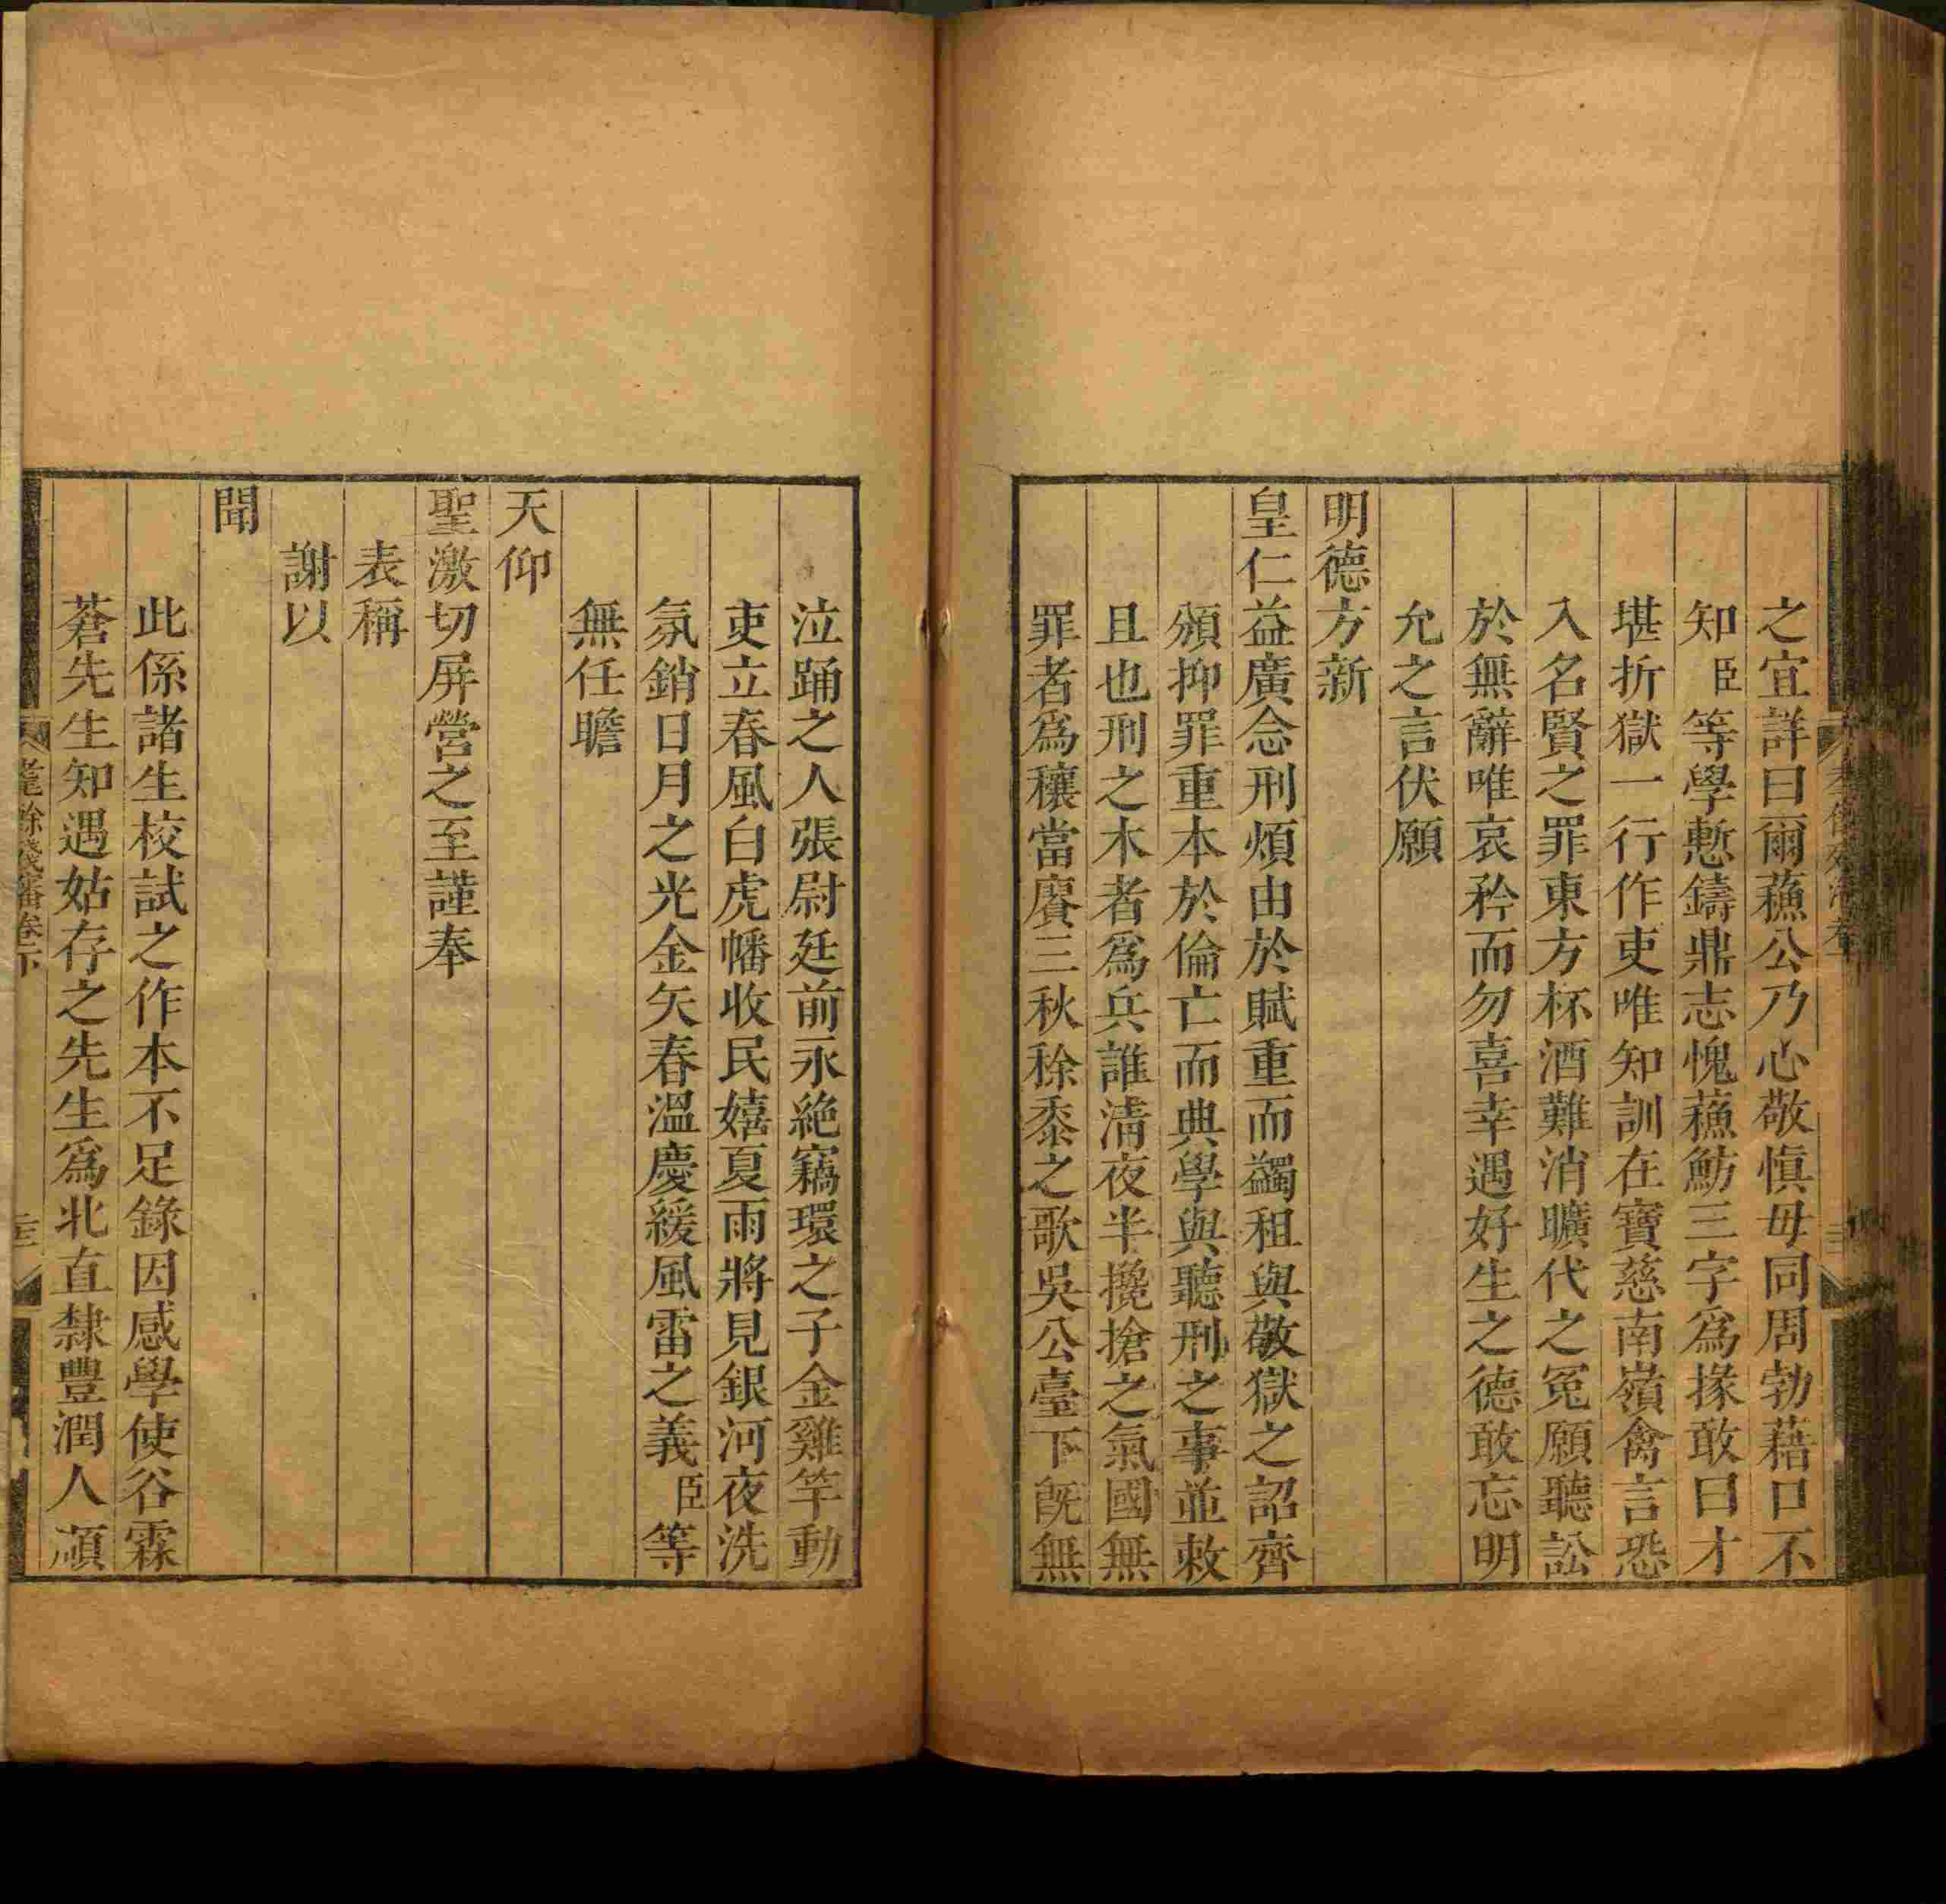 之宜詳曰爾蘓公乃心敬愼毋同周勃藉口不
知臣等學慙鑄鼎志愧蘓魴三字爲掾敢曰才
堪折獄一行作吏唯知訓在寶慈南嶺禽言恐
入名賢之罪東方杯酒難消曠代之冤願聽訟
於無辭唯哀矜而勿喜幸遇好生之德敢忘明
允之言伏願
明德方新
皇仁益廣念刑煩由於賦重而蠲租與敬獄之詔齊
頒抑罪重本於倫亡而典學與聽刑之事並敕
且也刑之木者爲兵誰淸夜半攙搶之氣國無
罪者爲穰當賡三秋稌黍之歌吳公臺下旣無
泣踊之人張尉廷前永絕竊環之子金雞竿動
吏立春風白虎幡收民嬉夏雨將見銀河夜洗
氛銷日月之光金矢春溫慶緩風雷之義臣等
無任瞻
天仰
聖激切屏營之至謹奉
表稱
謝以
聞
此係諸生校試之作本不足錄因感學使谷霖
蒼先生知遇姑存之先生爲北直隸豐潤人順
耄餘殘瀋卷下